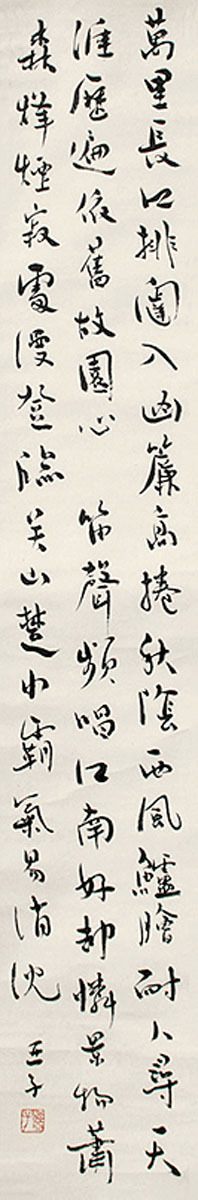 萬里長江排闥入幽簾高捲秋陰西風鱸膾耐人尋天
涯歷遍依舊故園心 笛聲頻唱江南好却憐景物蕭
森烽煙寂處漫登臨吳山楚水霸氣易消沈
亞子